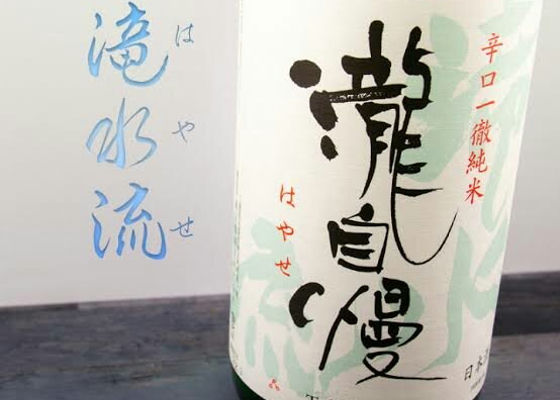 滝水流
はやせ
辛口一徹純米
瀧自慢
はやせ
日本酒